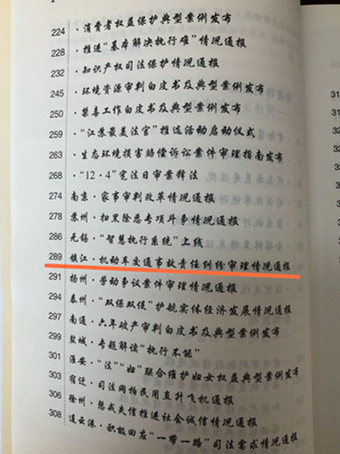 224 ·消费者权益保护典型案例发布
228 ·推进“基本解决执行难”情况通报
232 ·知识产权司法保护情况通报
245 ·环境资源审判白皮书及典型案例发布
250 ·禁毒工作白皮书及典型案例发布
259 ·“江苏最美法官”推选活动启动仪式
263 ·生态环境损害赔偿诉讼案件审理指南发布
268 ·“12·4”宪法日审案辩法
274 南京·家事审判改革情况通报
278 苏州·扫黑除恶专项斗争情况通报
286 无锡·“智慧执行系统”上线
289 镇江·机动车交通事故责任纠纷审理情况通报
291 扬州·劳动争议案件审理情况通报
294 泰州·“双保双促”护航实体经济发展情况通报
297 南通·六年破产审判白皮书及典型案例发布
盐城·专题解读“执行不能”
301 淮安·“法”“妇”联合维护妇女权益典型案例发布
303 宿迁·司法网拍民用直升飞机通报
306 徐州·惩戒失信推进社会诚信情况通报
308 连云港·积极回应“一带一路”司法需求情况通报